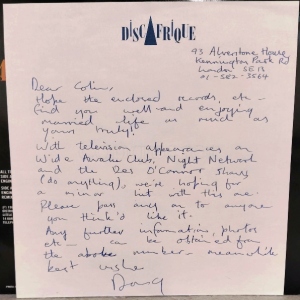 DISCAFRIQUE
93 Alverstone House
Kennington Park Rd
London SE11
01-582-3564
Dear Colin,
Hope the enclosed records, etc
find you well and enjoying
married life as much as
yours truly!
With television appearances on
Wide Awake Club, Night Network
and the Des O'Connor Show
(do anything), we're hoping for
a minor hit with this one.
Please pass any on to anyone
you think'd like it.
Any further information, photos
etc — can be obtained from
the above number — meanwhile
best wishes
Doug